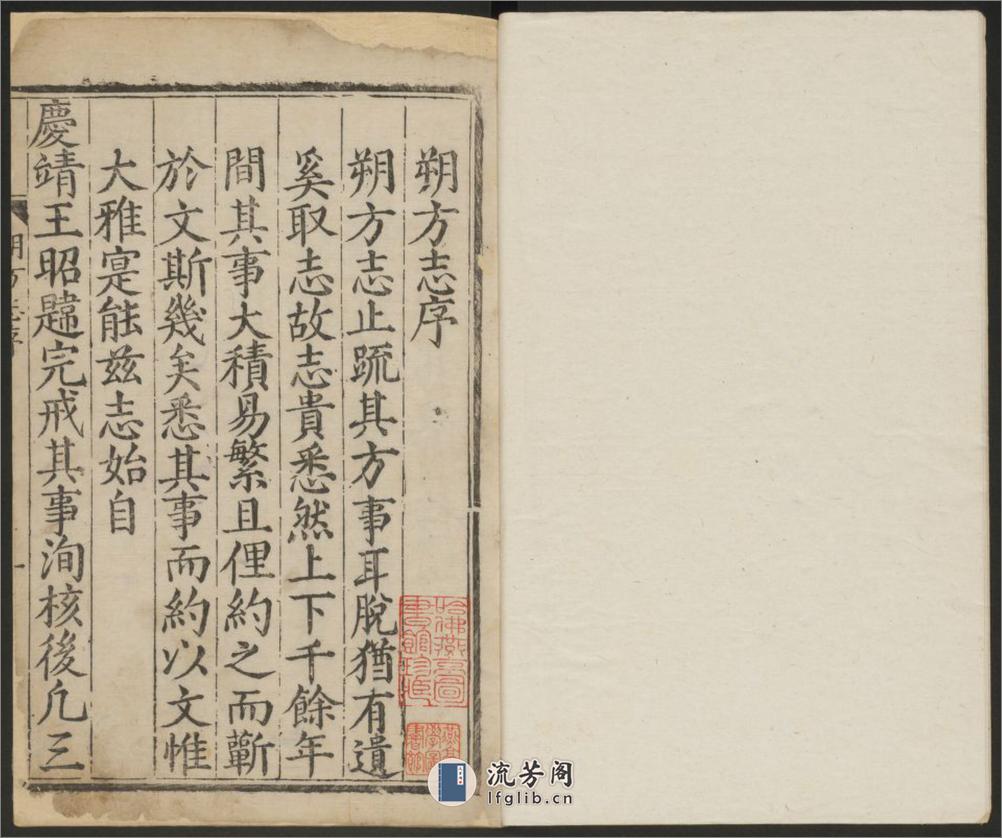 朔方志序
朔方志止疏其方事耳脫猶有遺
奚取志故志貴悉然上下千餘年
間其事大積易繁且俚約之而蘄
於文斯幾矣悉其事而約以文惟
大雅寔能茲志始自
慶靖王昭韙完戒其事洵核後凡三
哈佛燕京圖
書館珍藏
流芳阁
lfglib.cn